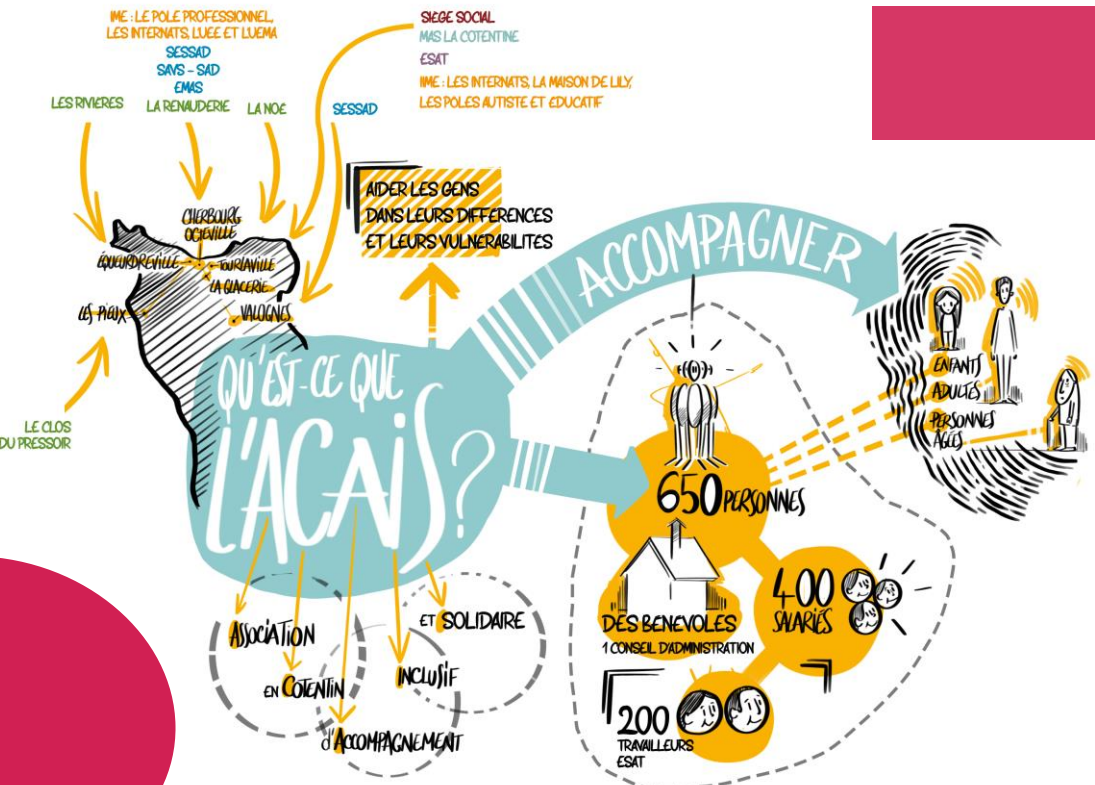 IME : LE POLE PROFESSIONNEL,
LES INTERNATS, L'UEE ET L'UEMA
SESSAD
SAVS - SAD
EMAS
LA RENAUDERIE
LES RIVIERES
LA NOE
SIEGE SOCIAL
MAS LA COTENTINE
ESAT
IME : LES INTERNATS, LA MAISON DE LILY,
LES POLES AUTISTE ET EDUCATIF
SESSAD
CHERBOURG
OCTEVILLE
EQUEURDREVILLE
TOURLAVILLE
LA GLACERIE
LES PIEUX
VALOGNES
LE CLOS
DU PRESSOIR
AIDER LES GENS
DANS LEURS DIFFERENCES
ET LEURS VULNERABILITES
ACCOMPAGNER
ENFANTS
ADULTES
PERSONNES
AGÉES
QU'EST-CE QUE
L'ACAIS ?
650 PERSONNES
DES BENEVOLES
1 CONSEIL D'ADMINISTRATION
400
SALARIÉS
200
TRAVAILLEURS
ESAT
ASSOCIATION
EN COTENTIN
d'ACCOMPAGNEMENT
INCLUSIF
ET SOLIDAIRE